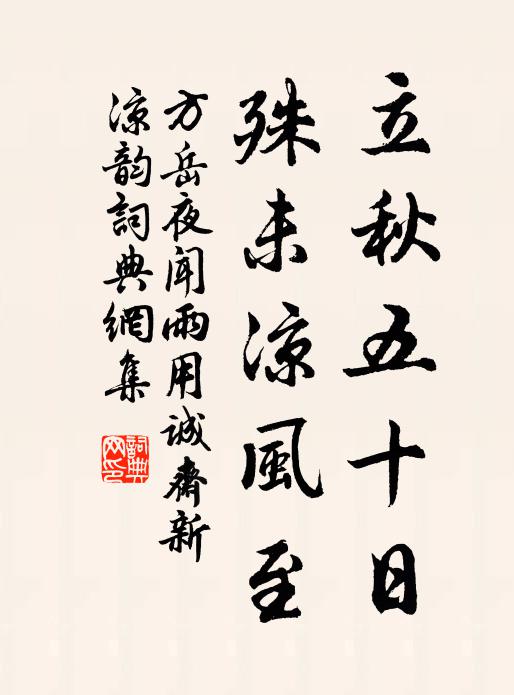 立秋五十日
殊未涼風至
方岳夜聞雨用誠齋新
涼韵詞典網集
詞典
网印